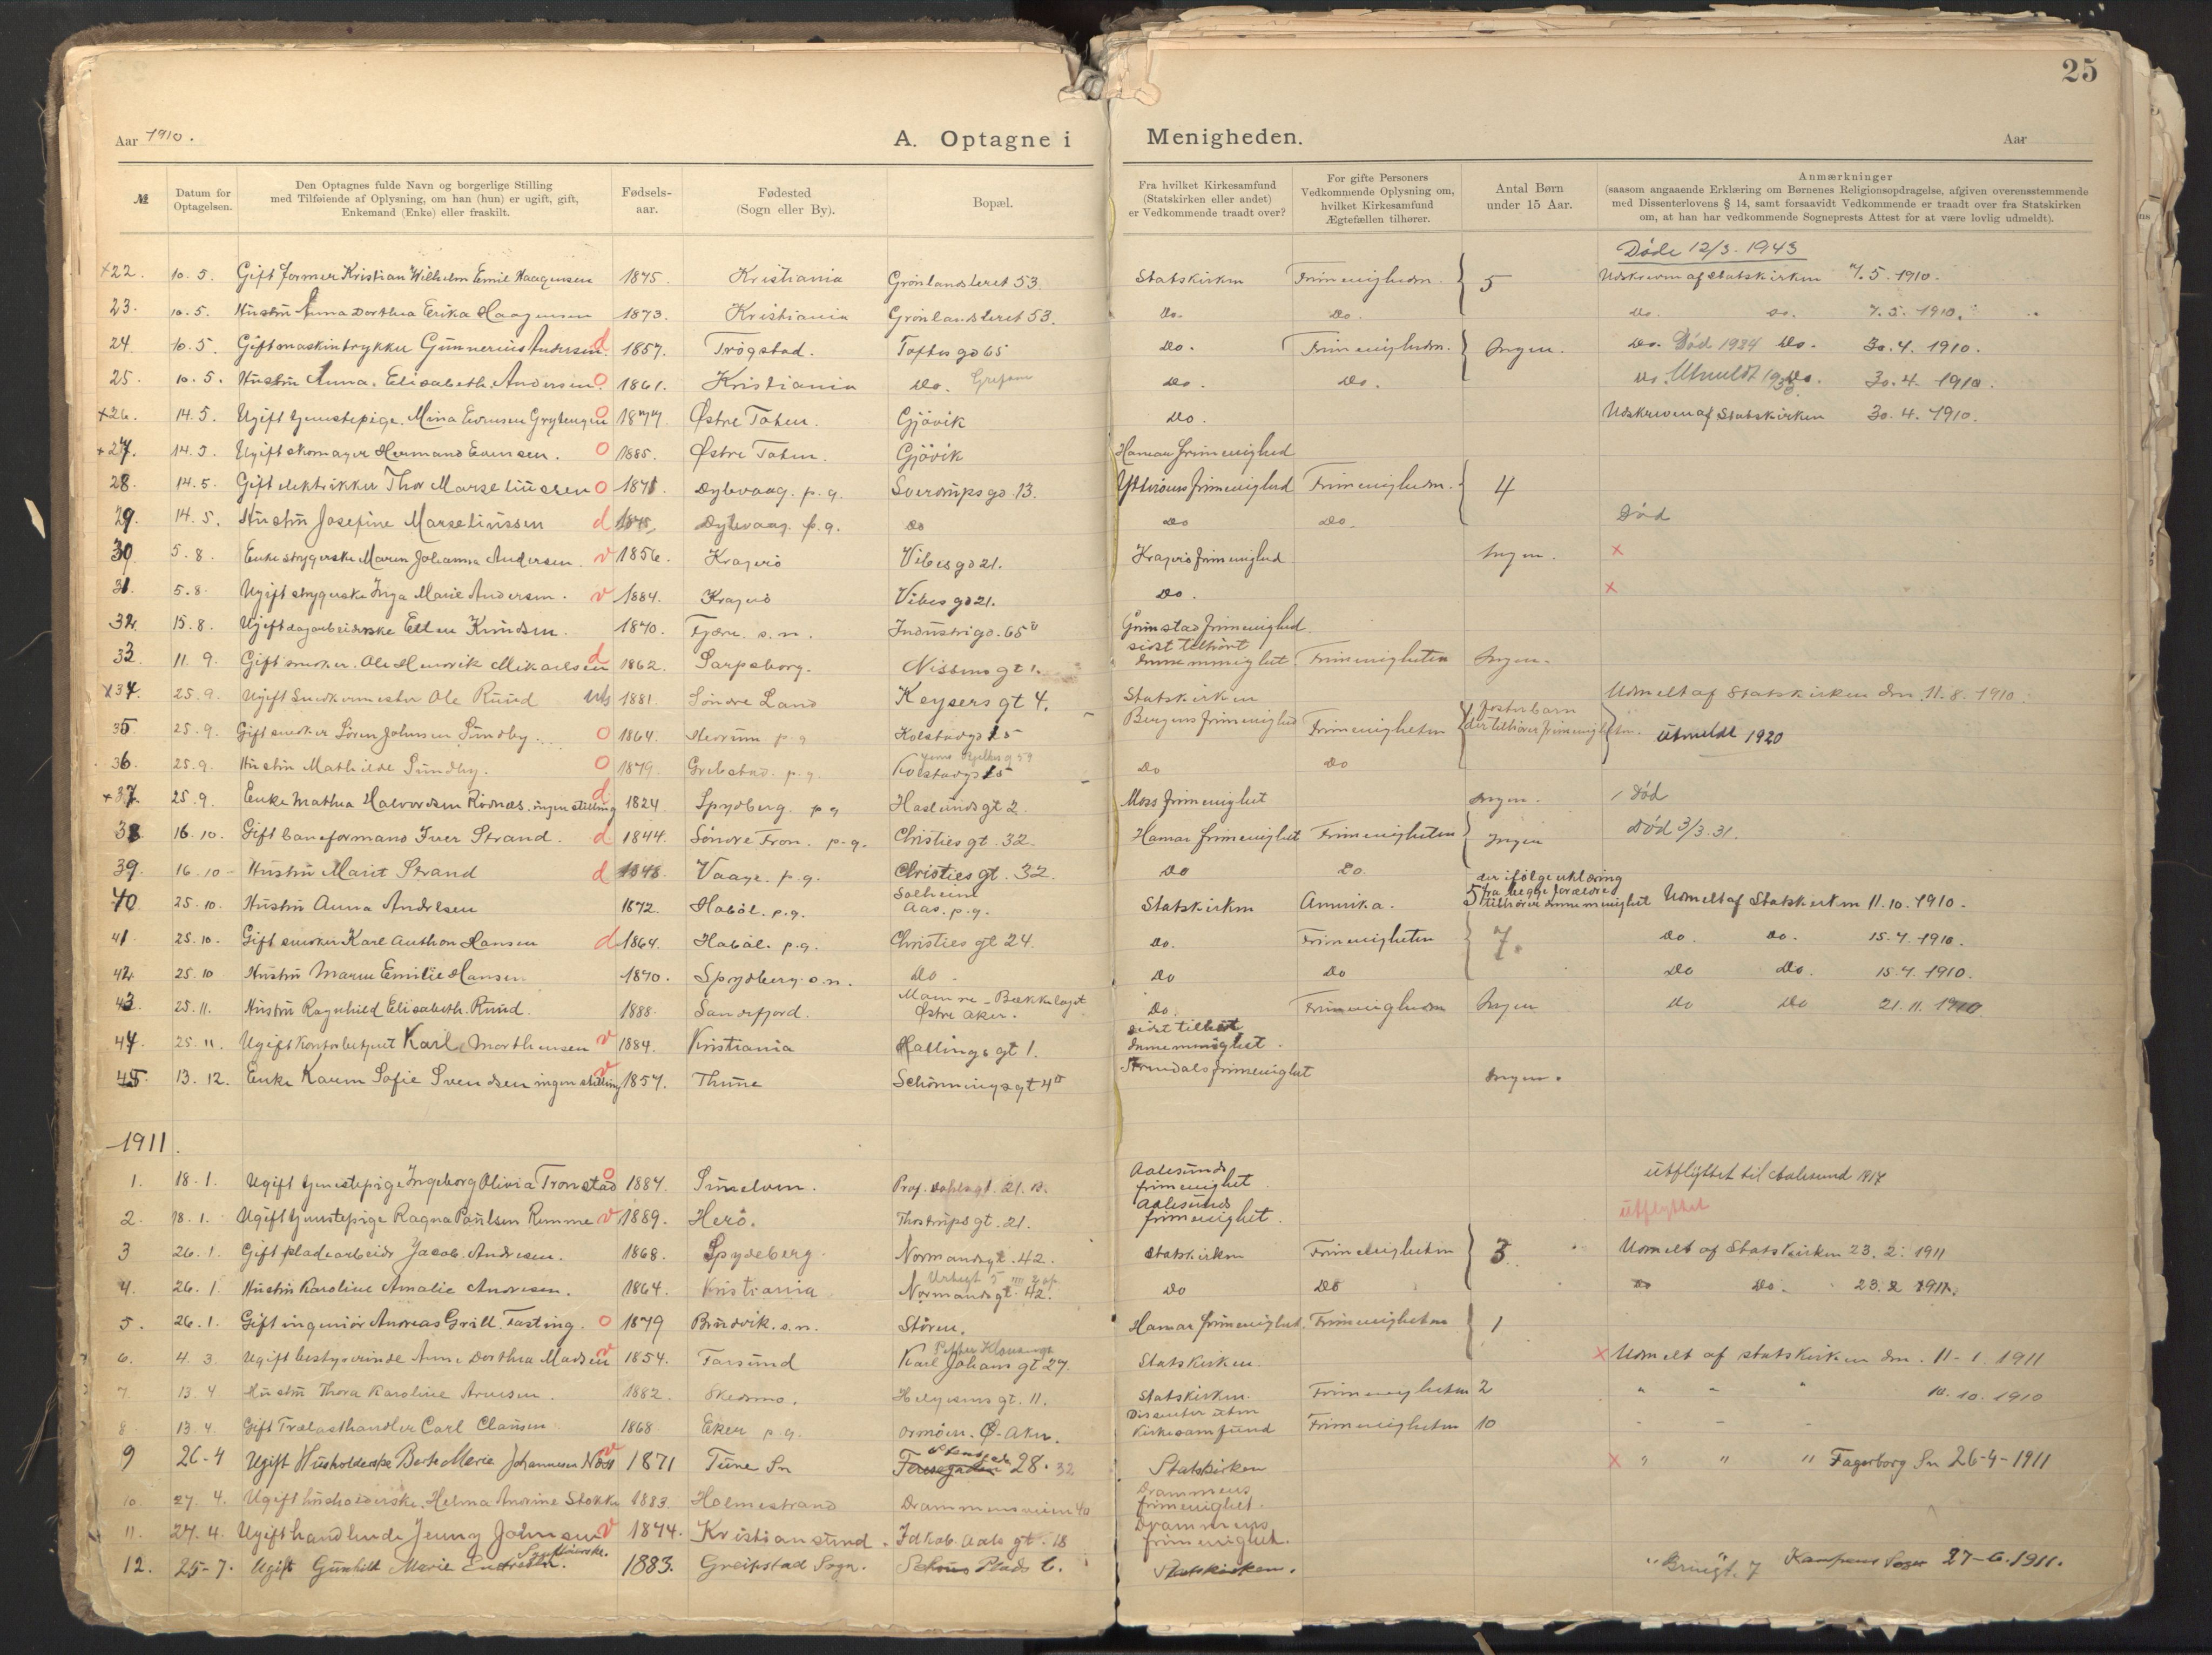 25
Aar 1910.
A. Optagne i Menigheden.
Aar
№
Datum for Optagelsen.
Den Optagnes fulde Navn og borgerlige Stilling med Tilføiende af Oplysning, om han (hun) er ugift, gift, Enkemand (Enke) eller fraskilt.
Fødsels-aar.
Fødested (Sogn eller By).
Bopæl.
Fra hvilket Kirkesamfund (Statskirken eller andet) er Vedkommende traadt over?
For gifte Personers Vedkommende Oplysning om, hvilket Kirkesamfund Ægtefællen tilhører.
Antal Børn under 15 Aar.
Anmærkninger (saasom angaaende Erklæring om Børnenes Religionsopdragelse, afgiven overensstemmende med Dissenterlovens § 14, samt forsaavidt Vedkommende er traadt over fra Statskirken om, at han har vedkommende Sogneprests Attest for at være lovlig udmeldt).
Døde 12/3. 1943
x22. 10. 5. Gift former Kristian Wilhelm Emil Haagensen 1875. Kristiania Grønlandsleret 53. Statskirken Frimenigheden. } 5 Udskreven af Statskirken 7. 5. 1910.
23. 10. 5. Hustru Anna Dorthea Erika Haagensen 1873. Kristiania Grønlandsleret 53. Do. Do. Do. Do. 7. 5. 1910.
24 10. 5. Gift maskintrykker Gunnerius Andersen. d 1857. Trøgstad. Toftes gd 65 Do. Frimenigheden. } Ingen. Do. Død 1934 Do. 30. 4. 1910.
25. 10. 5. Hustru Anna Elisabeth Andersen. O 1861. Kristiania Do. Grefsen Do. Do. Do. Utmeldt Do. 30. 4. 1910.
x26. 14. 5. Ugift tjenestepige. Mina Evensen O 1877 Østre Toten. Gjøvik Do. Udskreven af Statskirken 30. 4. 1910.
x27. 14. 5. Ugift skomager Hermand Evensen. O 1885. Østre Toten. Gjøvik Hamar frimenighed
28. 14. 5. Gift elektrikker Thor Marseliussen O 1871. Dybvaag. p. g. Sverdrups gd. 13. frimenighed Frimenigheden. } 4
29. 14. 5. Hustru Josefine Marseliussen d Dybvaag. p. g. Do Do Do. Død
30 5. 8. Enke strygerske Maren Johanna Andersen. v 1856. Kragerø Vibes gd 21. Kragerø frimenighed Ingen. x
31. 5. 8. Ugift strygerske Inga Marie Andersen. v 1884. Kragerø Vibes gd 21. Do. x
32. 15. 8. Ugift dagarbeiderske Ellen Knudsen. 1870. Fjære. s. n. Industrigd. 65 Grimstad frimenighed.
33. 11. 9. Gift smeker. Ole Henrik Mikaelsen d 1862. Sarpsborg. Nissens gt 1. sidst tilhørt denne menighet. Frimenigheten Ingen.
x34. 25. 9. Ugift Snedkermester Ole Ruud 1881 Søndre Land Keysers gt 4. Statskirken Udmelt af Statskirken den 11. 8. 1910.
35. 25. 9. Gift snedker Søren Johnsen Sundby. O 1864. p. g. Kolstadgd 15 Bergens frimenighed Frimenigheten fosterbarn der tilhører frimenigheten. Utmeldt 1920
36. 25. 9. Hustru Mathilde Sundby. O 1879. Grebstad. p. g. Kolstadgd 15 Do Do
x37. 25. 9. Enke Mathea Halvordsen Rødnæs. ingen stilling d. 1824. Spydberg. p g Haslunds gt 2. Moss frimenighet Ingen. Død
38. 16. 10. Gift baneformand Iver Strand. d 1844. Søndre Fron. p. g. Christies gt. 32. Hamar frimenighet Frimenigheten } Ingen Død 3/3. 31.
39. 16. 10 Hustru Marit Strand d 1848. Vaage. p. g. Christies gt. 32. Do Do.
40 25. 10. Hustru Anna Andresen 1872. Hobøl. p. g. Solheim Aas. p. g. Statskirken Amerika. 5 der ifølge erklæring fra begge forældre tilhører denne menighet Udmelt af Statskirken 11. 10. 1910.
41 25. 10. Gift snedker Karl Anthon Hansen d 1864. Hobøl. p. g. Christies gt 24. Do. Frimenigheten } 7. Do. Do. 15. 7. 1910.
42. 25. 10 Hustru Maren Emilie Hansen 1870. Spydberg. s. n. Do. Do Do Do Do. 15. 7. 1910.
43. 25. 11. Hustru Ragnhild Elisabeth. Ruud. 1888. Sandefjord. Mamre - Bækkelaget Østre Aker. Do. Frimenigheden Ingen Do Do 21. 11. 1910
44. 25. 11. Ugift Kontorbetjent Karl Morthensen v 1884. Kristiania Hallings gt 1. sidst tilhørt denne menighet.
45. 13. 12. Enke Karen Sofie Svendsen ingen stilling v 1857. Thune Schønnings gt 4 frimenighet Ingen.
1911.
1. 18. 1. Ugift tjenestepige Ingeborg Olivia Tronstad O 1884. Sunelven. Prof. Dahls gt. 21. B. Aalesunds frimenighet Utflyttet til Aalesund 1917
2. 18. 1. Ugift tjenestepige Ragna Paulsen Remme v 1889. Herø. Thostrups gt. 21. Aalesunds frimenighet. Utflyttet
3 26. 1. Gift pladearbeider Jacob. Andresen. 1868. Spydeberg. Normandsgt. 42. Statskirken Frimenigheten } 3 Udmelt af Statskirken 23. 2. 1911
4. 26. 1. Hustru Karoline Amalie Andresen. 1864. Kristiania Normandsgt. 42. Do Do Do Do. 23. 2 1911.
5. 26. 1. Gift ingeniør Andreas Grill. Fasting. O 1879 Brudvik. s. n. Støren. Hamar frimenighet. Frimenigheten } 1
6. 4. 3. Ugift bestyrerinde Anne Dorthea Madsen v 1854. Farsund Karl Johans gt 27. Statskirken. x Udmelt af statskirken den. 11. 1. 1911
7. 13. 4 Hustru Thora Karoline Arnesen. 1882. Skedsmo. Helgesens gt. 11. Statskirken. Frimenigheten 2 " " " 10. 10. 1910
8 13. 4. Gift Trælasthandler Carl Clausen 1868 Eker p. g. Ormøen. Ø. Aker. Dissenter uten Kirkesamfund Frimenigheten 10 " " "
9 26-4 Ugift Husholderske Berte Marie Johannesen Næss v 1871 Tune Sn 28. 32 Statskirken x " " " Fagerborg Sn 26-4-1911
10. 27. 4. Ugift husholderske. Helma Andrine Stokke 1883. Holmestrand Drammensveien 40 Drammens frimenighet.
11. 27. 4. Ugift handlende Jenny Johnsen v 1874. Kristiansund. Jakob Aals gt. 18 Drammens frimenighet.
12. 25-7. Ugift Gunhild Marie Endresen. 1883. Greipstad Sogn. Schous Plads 6. Statskirken. Kampens Sogn 27-6-1911.